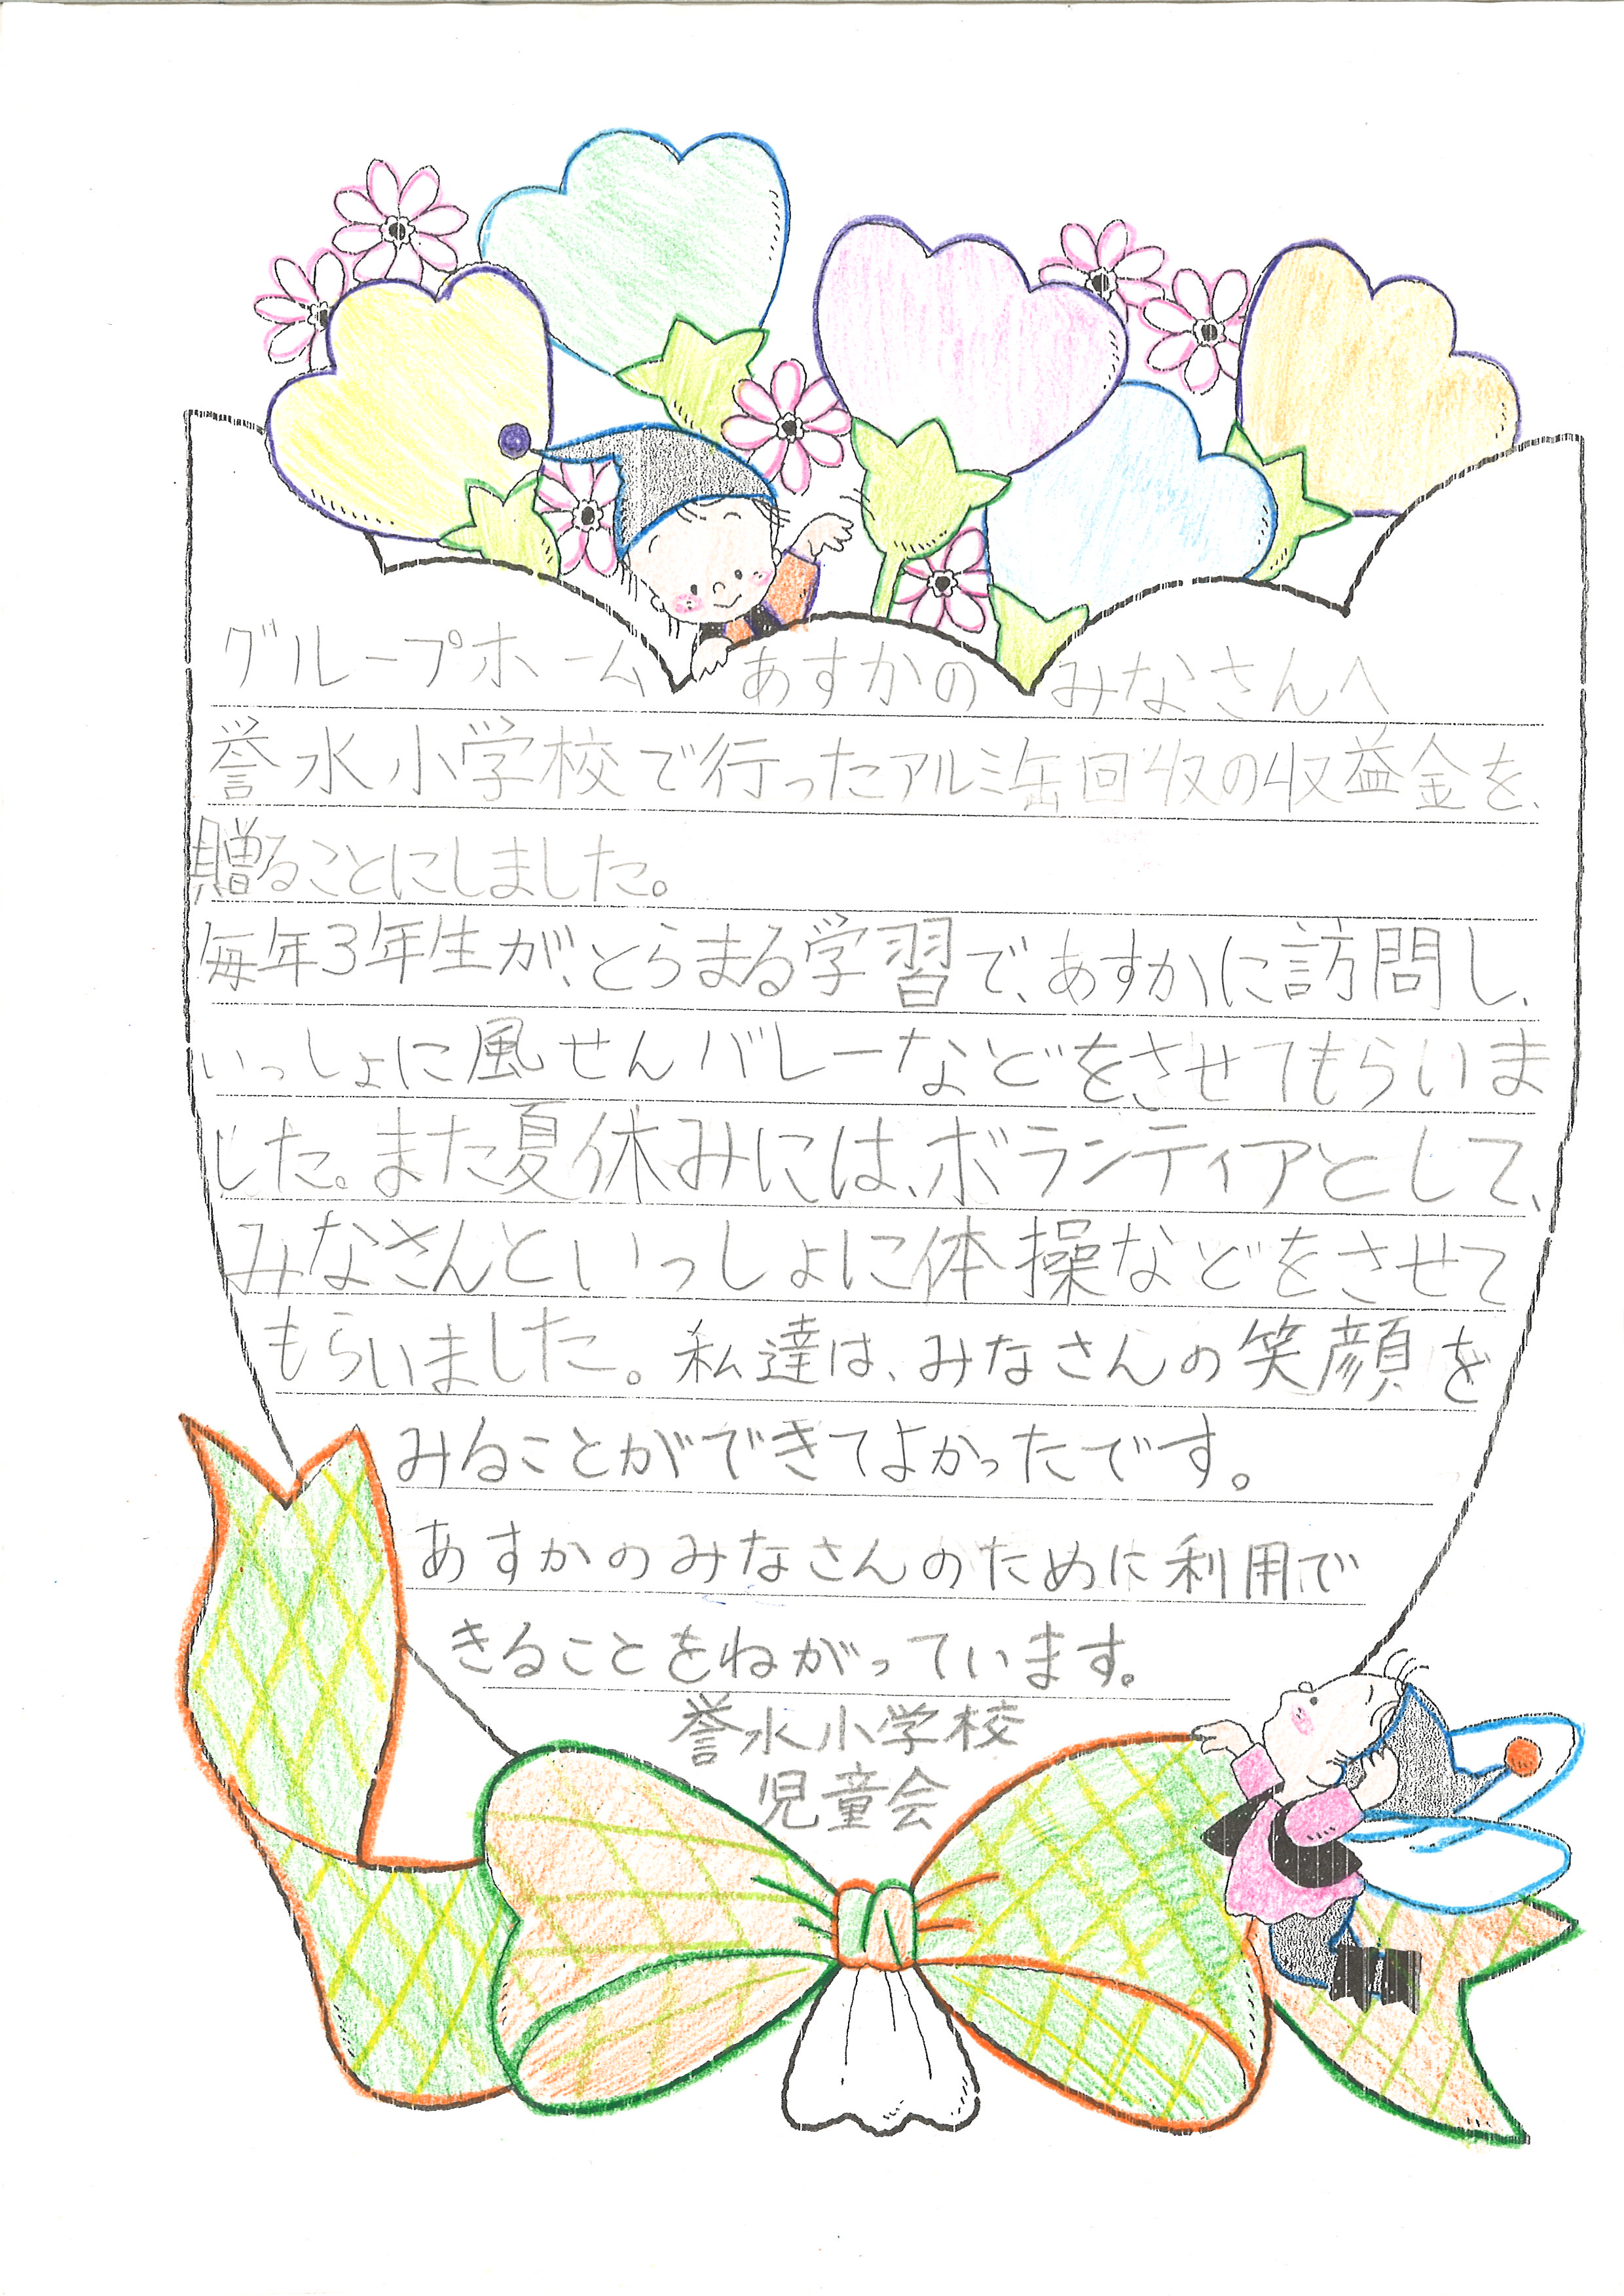 グループホーム あすかの みなさんへ
誉水小学校で行ったアルミ缶回収の収益金を、
贈ることにしました。
毎年3年生が、とらまる学習で、あすかに訪問し、
いっしょに風せんバレーなどをさせてもらいま
した。また夏休みには、ボランティアとして、
みなさんといっしょに体操などをさせて
もらいました。私達は、みなさんの笑顔を
みることができてよかったです。
あすかのみなさんのために利用で
きることをねがっています。
誉水小学校
児童会